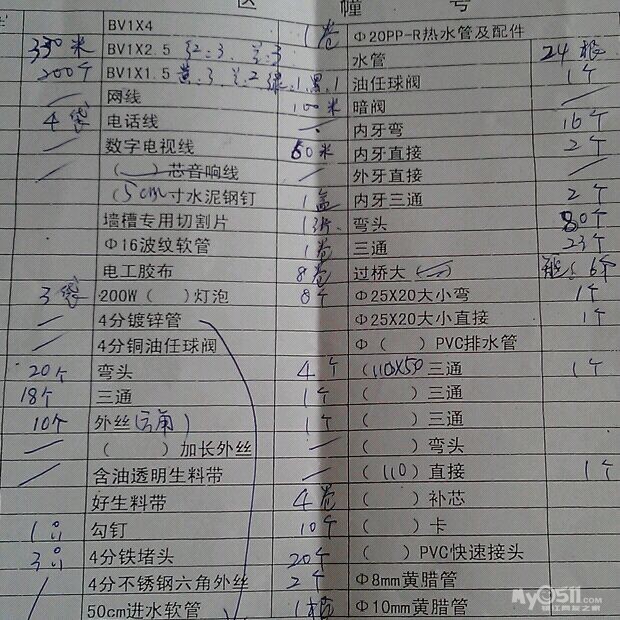 区 幢 号
BV1X4 1卷 Φ20PP-R热水管及配件
330米 BV1X2.5 红:3、兰:3 水管 24根
200个 BV1X1.5 黄:3、兰:2 绿:1、黑:1 油任球阀 1个
/ 网线 100米 暗阀 /
4袋 电话线 / 内牙弯 16个
/ 数字电视线 60米 内牙直接 2个
/ ( )芯音响线 / 外牙直接 /
(5cm寸水泥钢钉 1盒 内牙三通 2个
墙槽专用切割片 弯头 80个
Φ16波纹软管 1卷 三通 23个
电工胶布 8卷 过桥大 6个
3袋 200W( )灯泡 8个 Φ25X20大小弯 1个
/ 4分镀锌管 Φ25X20大小直接 1个
/ 4分铜油任球阀 Φ( )PVC排水管
20个 弯头 4个 (110X50三通 1个
18个 三通 1个 ( )三通
10个 外丝 1个 ( )三通
/ ( )加长外丝 / ( )弯头
/ 含油透明生料带 / (110)直接 1个
好生料带 4卷 ( )补芯
勾钉 10个 ( )卡
4分铁堵头 20个 ( )PVC快速接头
/ 4分不锈钢六角外丝 2个 Φ8mm黄腊管
/ 50cm进水软管 1根 Φ10mm黄腊管
My0511.com